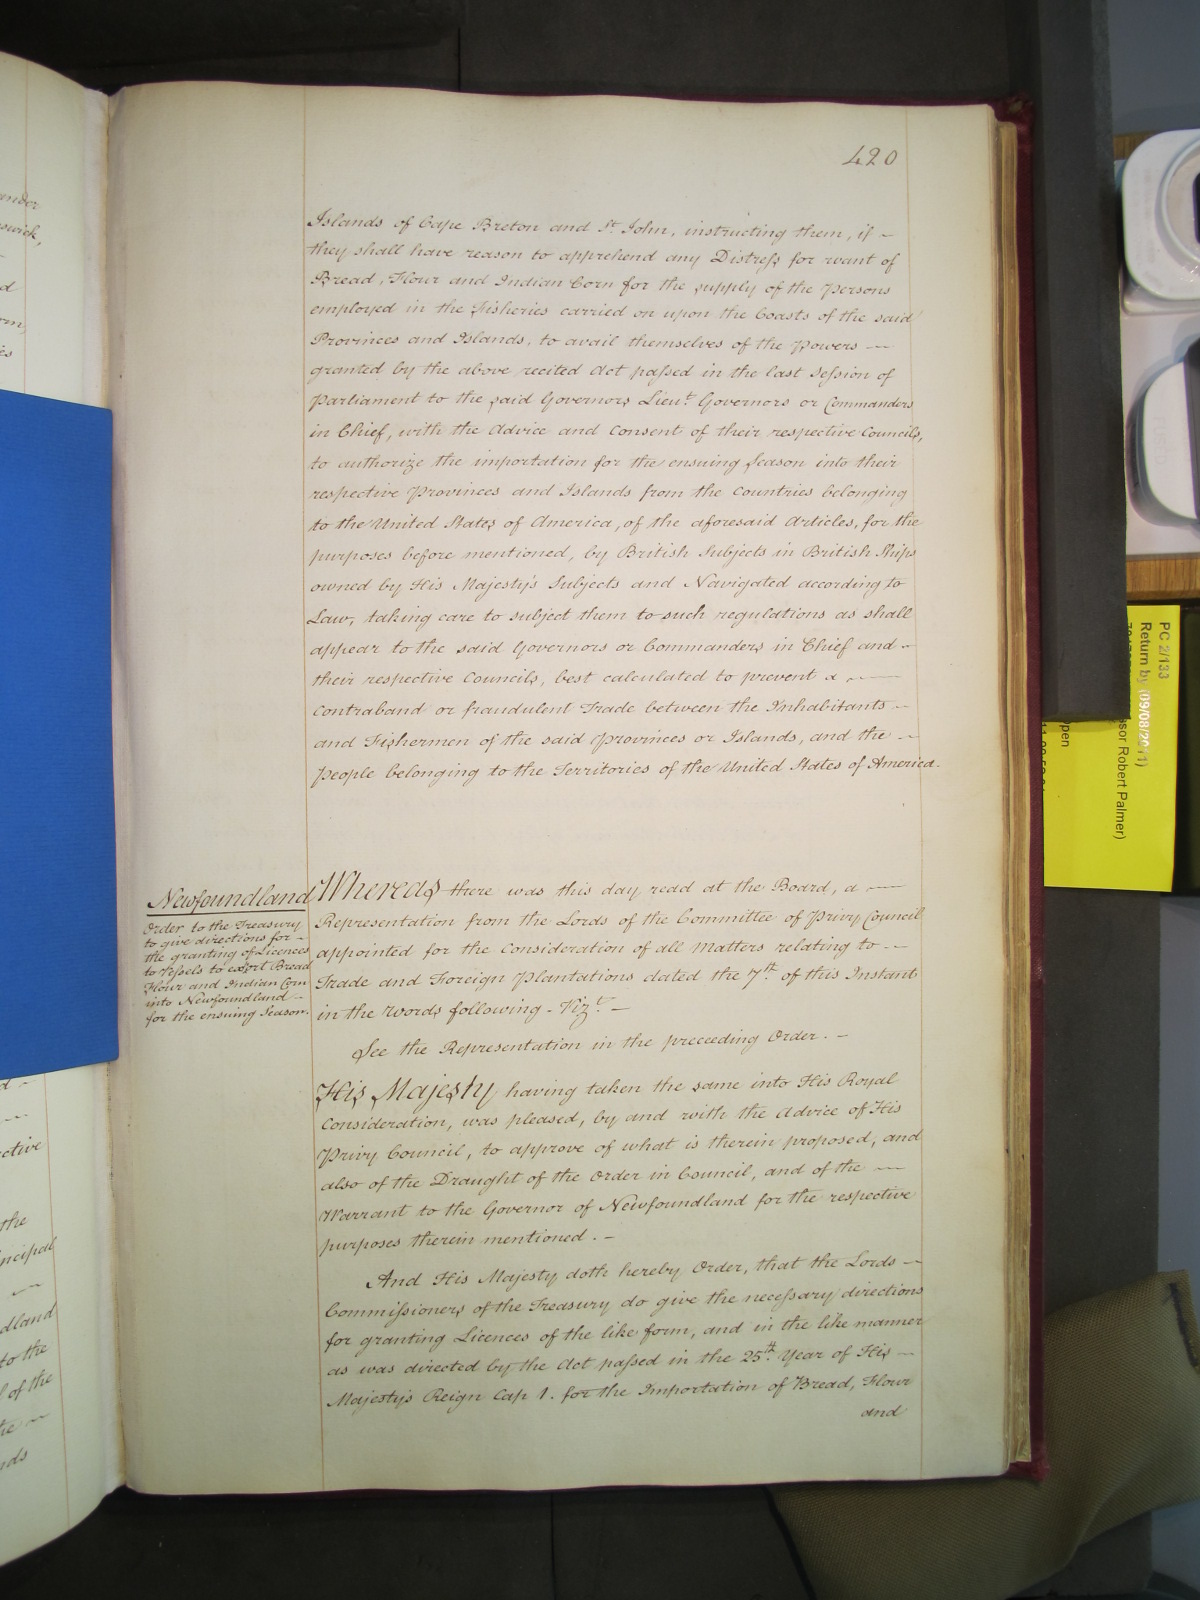 420
Islands of Cape Breton and St. John, instructing them, if –
they shall have reason to apprehend any Distress for want of
Bread, Flour and Indian Corn for the supply of the Persons
employed in the Fisheries carried on upon the Coasts of the said
Provinces and Islands, to avail themselves of the Powers —
granted by the above recited Act passed in the last Session of
Parliament to the said Governors Lieut. Governors or Commanders
in Chief, with the Advice and Consent of their respective Councils,
to authorize the importation for the ensuing Season into their
respective Provinces and Islands from the Countries belonging
to the United States of America, of the aforesaid Articles, for the
purposes before mentioned, by British Subjects in British Ships
owned by His Majesty's Subjects and Navigated according to
Law, taking care to subject them to such regulations as shall
appear to the said Governors or Commanders in Chief and –
their respective Councils, best calculated to prevent a —
contraband or fraudulent Trade between the Inhabitants –
and Fishermen of the said Provinces or Islands, and the –
People belonging to the Territories of the United States of America.
Newfoundland
Order to the Treasury
to give directions for –
the granting of Licences
to Vessels to export Bread
Flour and Indian Corn
into Newfoundland –
for the ensuing Season.
Whereas there was this day read at the Board, a —
Representation from the Lords of the Committee of Privy Council
appointed for the Consideration of all Matters relating to –
Trade and Foreign Plantations dated the 7th. of this Instant
in the Words following – Vizt. –
See the Representation in the preceeding Order. –
His Majesty having taken the same into His Royal
Consideration, was pleased, by and with the Advice of His
Privy Council, to approve of what is therein proposed, and
also of the Draught of the Order in Council, and of the —
Warrant to the Governor of Newfoundland for the respective
purposes therein mentioned. –
And His Majesty doth hereby Order, that the Lords –
Commissioners of the Treasury do give the necessary directions
for granting Licences of the like form, and in the like manner
as was directed by the Act passed in the 25th. Year of His –
Majesty's Reign Cap 1. for the Importation of Bread, Flour
and
PC 2/133
Return by (09/08/2011)
ssor Robert Palmer)
ctive
the
ncipal
dland
to the
of the